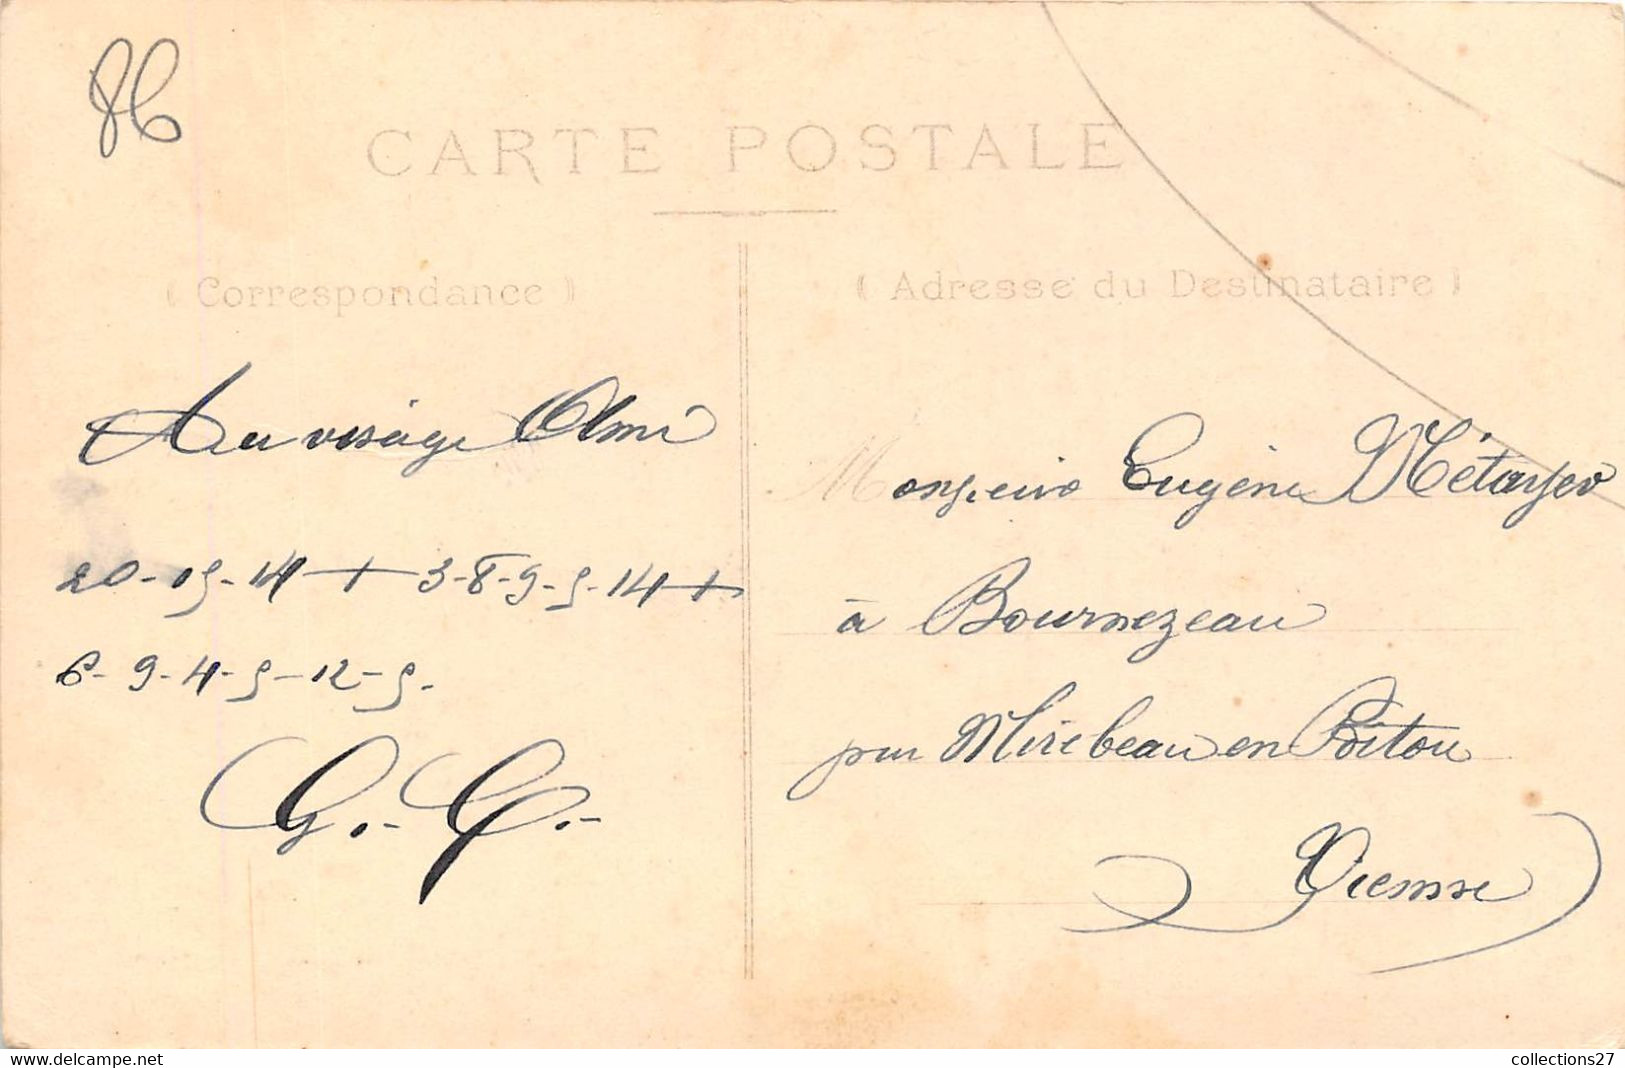 86
CARTE POSTALE
( Correspondance )
( Adresse du Destinataire )
Au visage Aimé
20-15-14 + 3-8-9-5-14 +
6-9-4-5-12-5.
G.- G.-
Monsieur Eugène Métayer
à Bournezeau
par Mirebeau en Poitou
Vienne
collections27